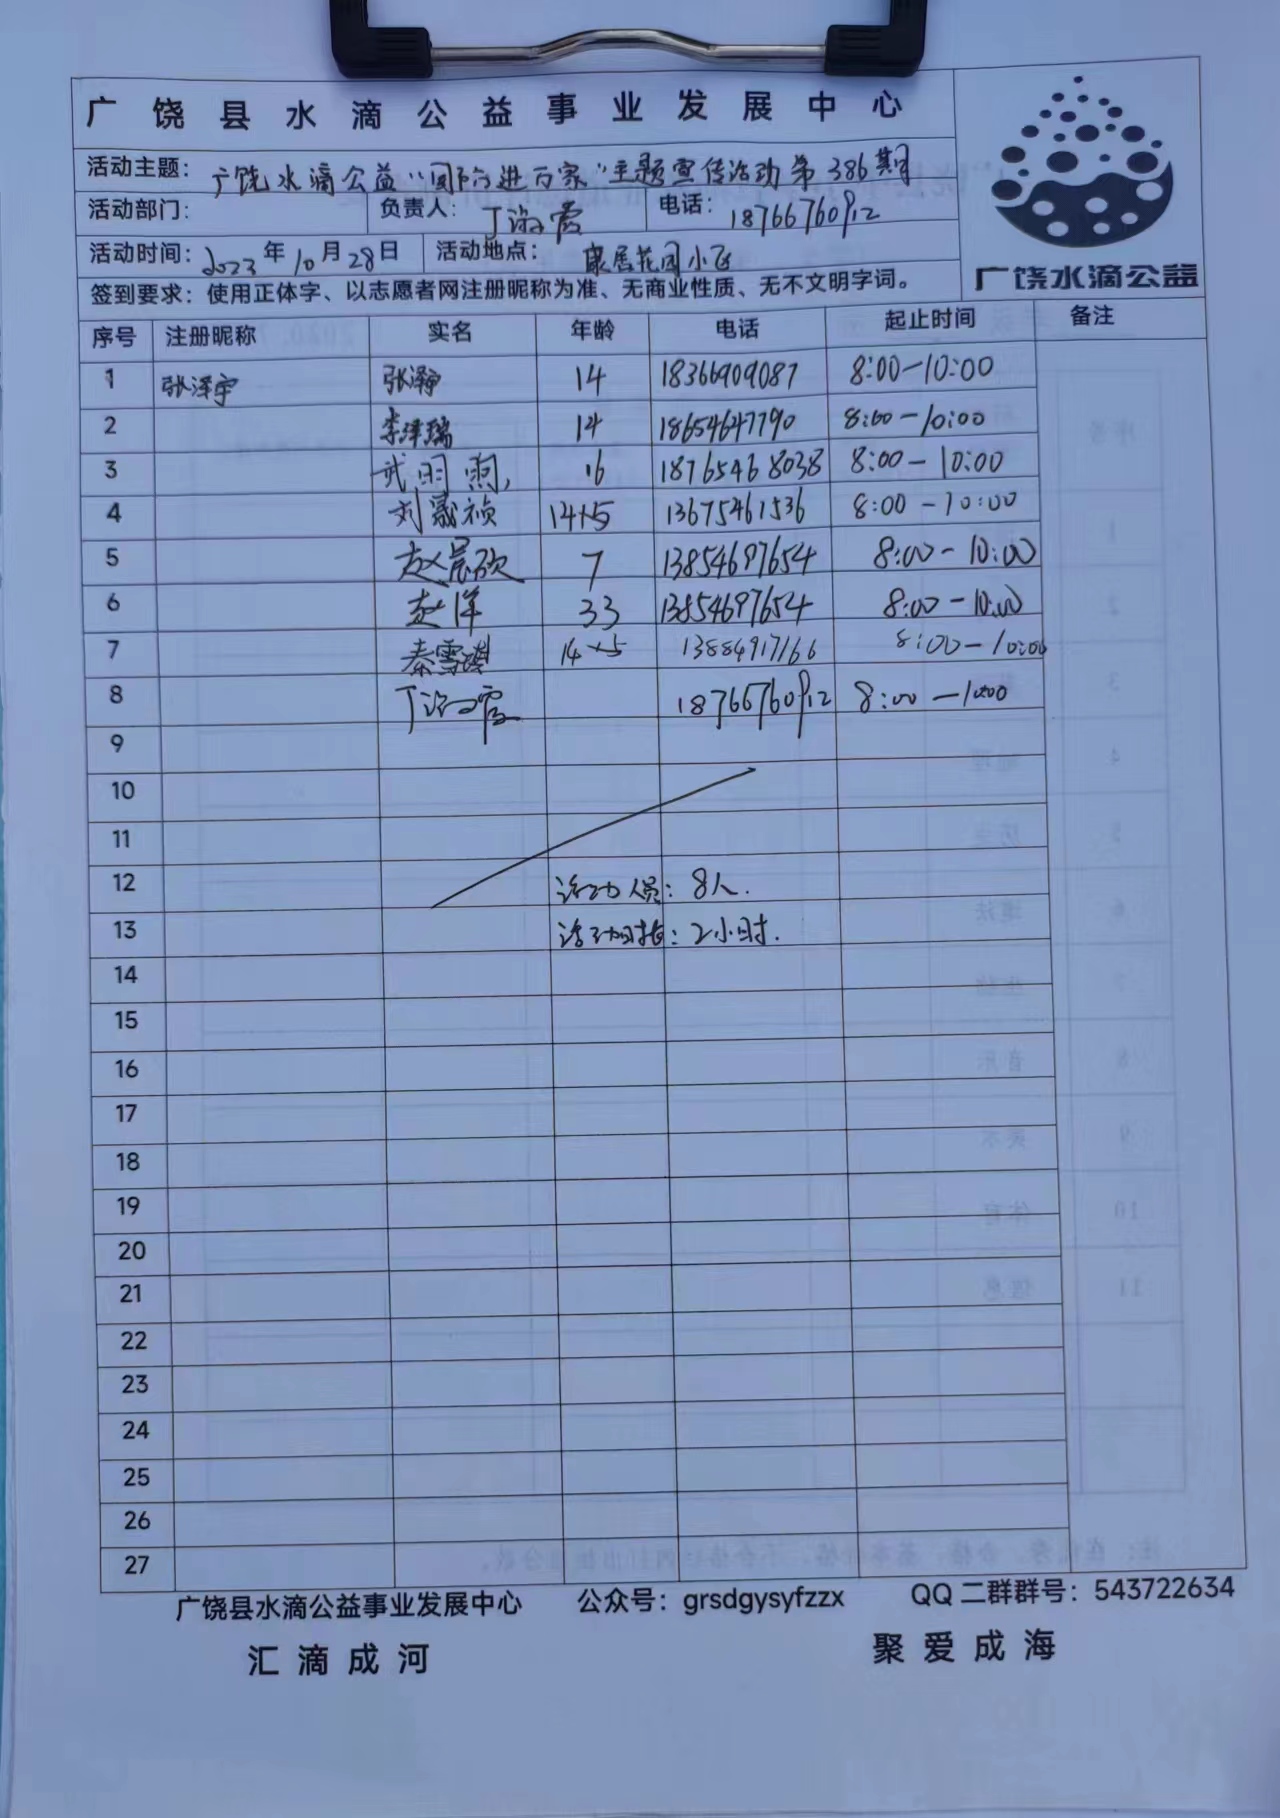 广饶县水滴公益事业发展中心
活动主题：广饶水滴公益“国防进万家”主题宣传活动第386期
活动部门： 负责人：丁淑霞 电话：18766760912
活动时间：2023年10月28日 活动地点：康居花园小区
签到要求：使用正体字、以志愿者网注册昵称为准、无商业性质、无不文明字词。
广饶水滴公益
序号 注册昵称 实名 年龄 电话 起止时间 备注
1 张泽宇 张泽宇 14 18366909087 8:00-10:00
2 李泽瑞 14 18654647790 8:00-10:00
3 武明 16 18765468038 8:00-10:00
4 刘晟祯 14岁 13675461536 8:00-10:00
5 赵晨欣 7 13854697654 8:00-10:00
6 赵洋 33 13854697654 8:00-10:00
7 秦雪琪 14岁 13884917166 8:00-10:00
8 丁淑霞 18766760912 8:00-10:00
9
10
11
12 活动人员：8人.
13 活动时长：2小时.
14
15
16
17
18
19
20
21
22
23
24
25
26
27
广饶县水滴公益事业发展中心 公众号：grsdgysyfzzx QQ二群群号：543722634
汇滴成河 聚爱成海